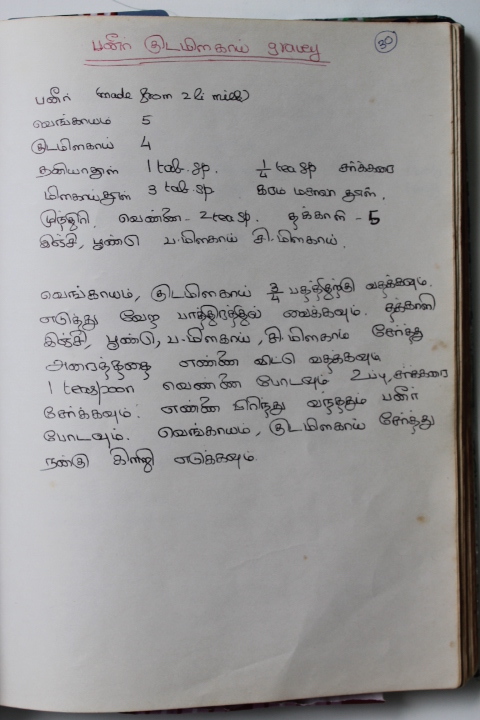 பனீர் குடமிளகாய் gravey
30
பனீர் (made from 2 li milk)
வெங்காயம் 5
குடமிளகாய் 4
தனியாதூள் 1 tab.sp. 1/4 tea sp சர்க்கரை
மிளகாய்தூள் 3 tab.sp. கரம மசாலா தூள்.
முந்திரி, வெண்ணை - 2 tea sp. தக்காளி - 5
இஞ்சி, பூண்டு ப.மிளகாய் சி.மிளகாய்.
வெங்காயம், குடமிளகாய் 3/4 பதத்திற்கு வதக்கவும்.
எடுத்து வேறு பாத்திரத்தில் வைக்கவும். தக்காளி
இஞ்சி, பூண்டு, ப.மிளகாய், சி.மிளகாய் சேர்த்து
அரைத்ததை எண்ணை விட்டு வதக்கவும்
1 teaspoon வெண்ணை போடவும் உப்பு, சர்க்கரை
சேர்க்கவும். எண்ணை பிரிந்து வந்ததும் பனீர்
போடவும். வெங்காயம், குடமிளகாய் சேர்த்து
நன்கு கிளறி எடுக்கவும்.